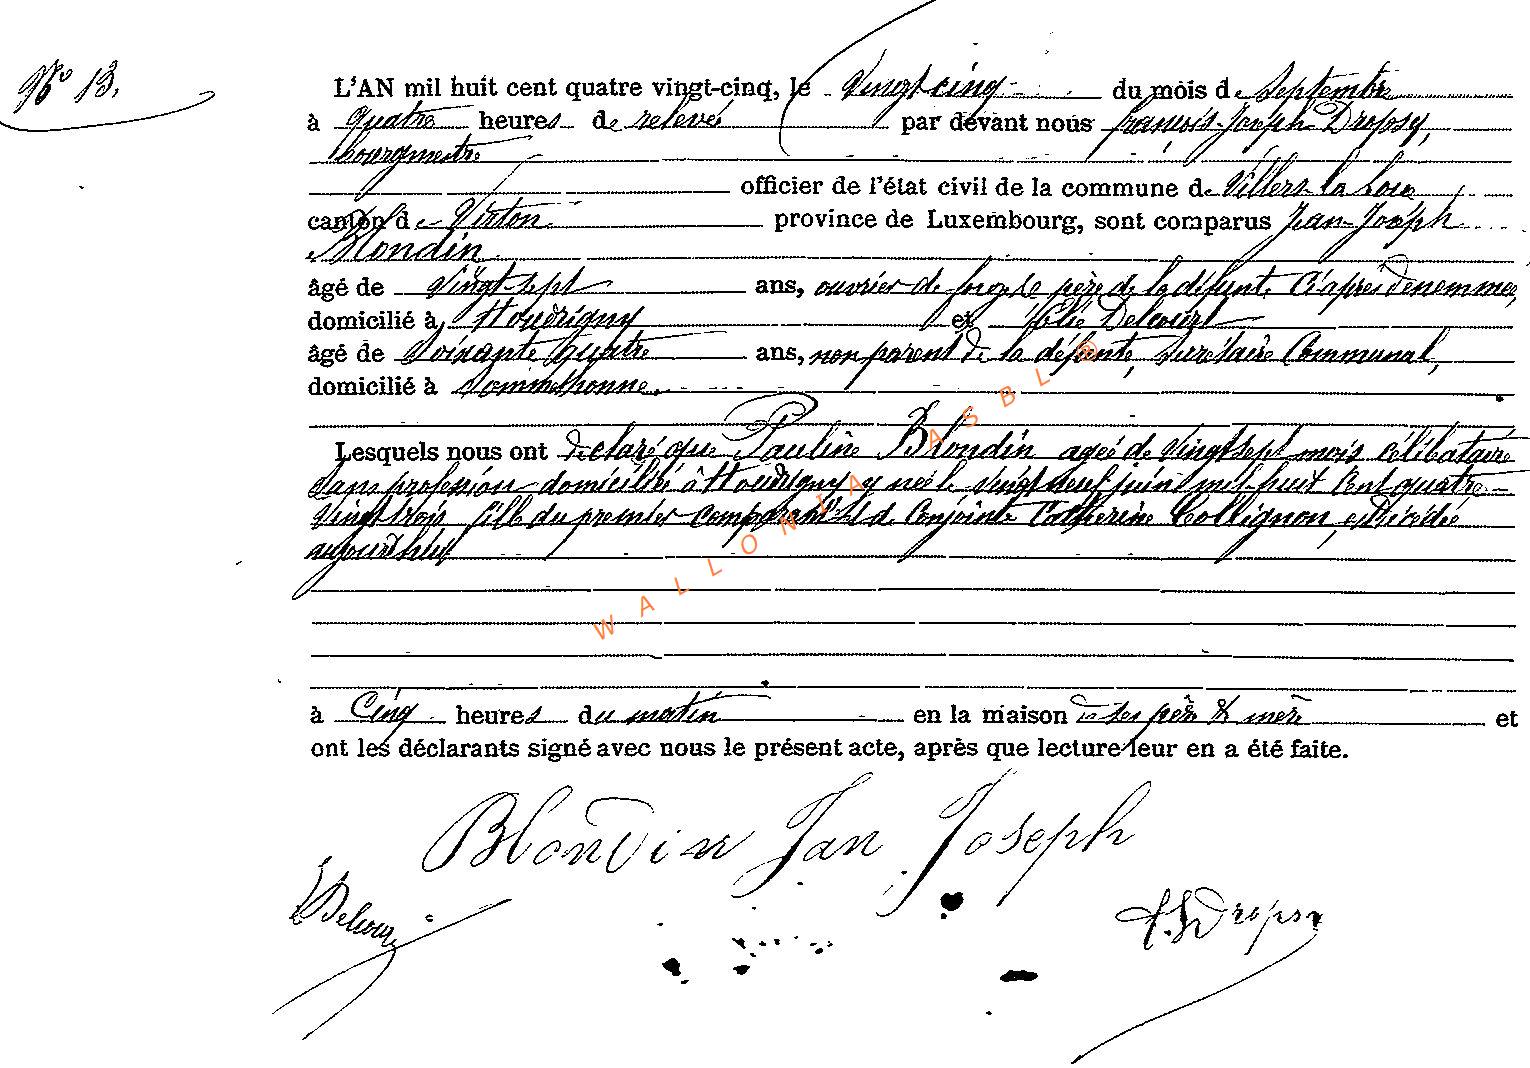 No 13.
L'AN mil huit cent quatre vingt-cinq, le vingt cinq du mois de Septembre
à quatre heures de relevée par devant nous françois-Joseph Dropsy,
bourgmestre
officier de l'état civil de la commune de Villers-la-Loue
canton de Virton province de Luxembourg, sont comparus Jean-Joseph
Blondin
âgé de vingt-sept ans, ouvrier de forges père de la défunte ci après dénommée,
domicilié à Houdrigny et Elie Delcourt
âgé de soixante quatre ans, non parent de la défunte, secrétaire communal,
domicilié à Sommethonne.
Lesquels nous ont déclaré que Pauline Blondin agée de vingt sept mois célibataire
sans profession domiciliée à Houdrigny y née le vingt neuf juin mil-huit cent quatre
vingt trois fille du premier comparant et de conjointe Catherine Collignon, est décédée
aujourd'hui
à Cinq heures du matin en la maison de ses père & mère et
ont les déclarants signé avec nous le présent acte, après que lecture leur en a été faite.
Blondin Jan Joseph
EDelcourt
f.JDropsy
WALLONIA ASBL ®